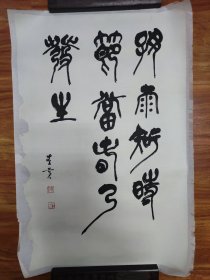 好雨知時
節當春乃
發生